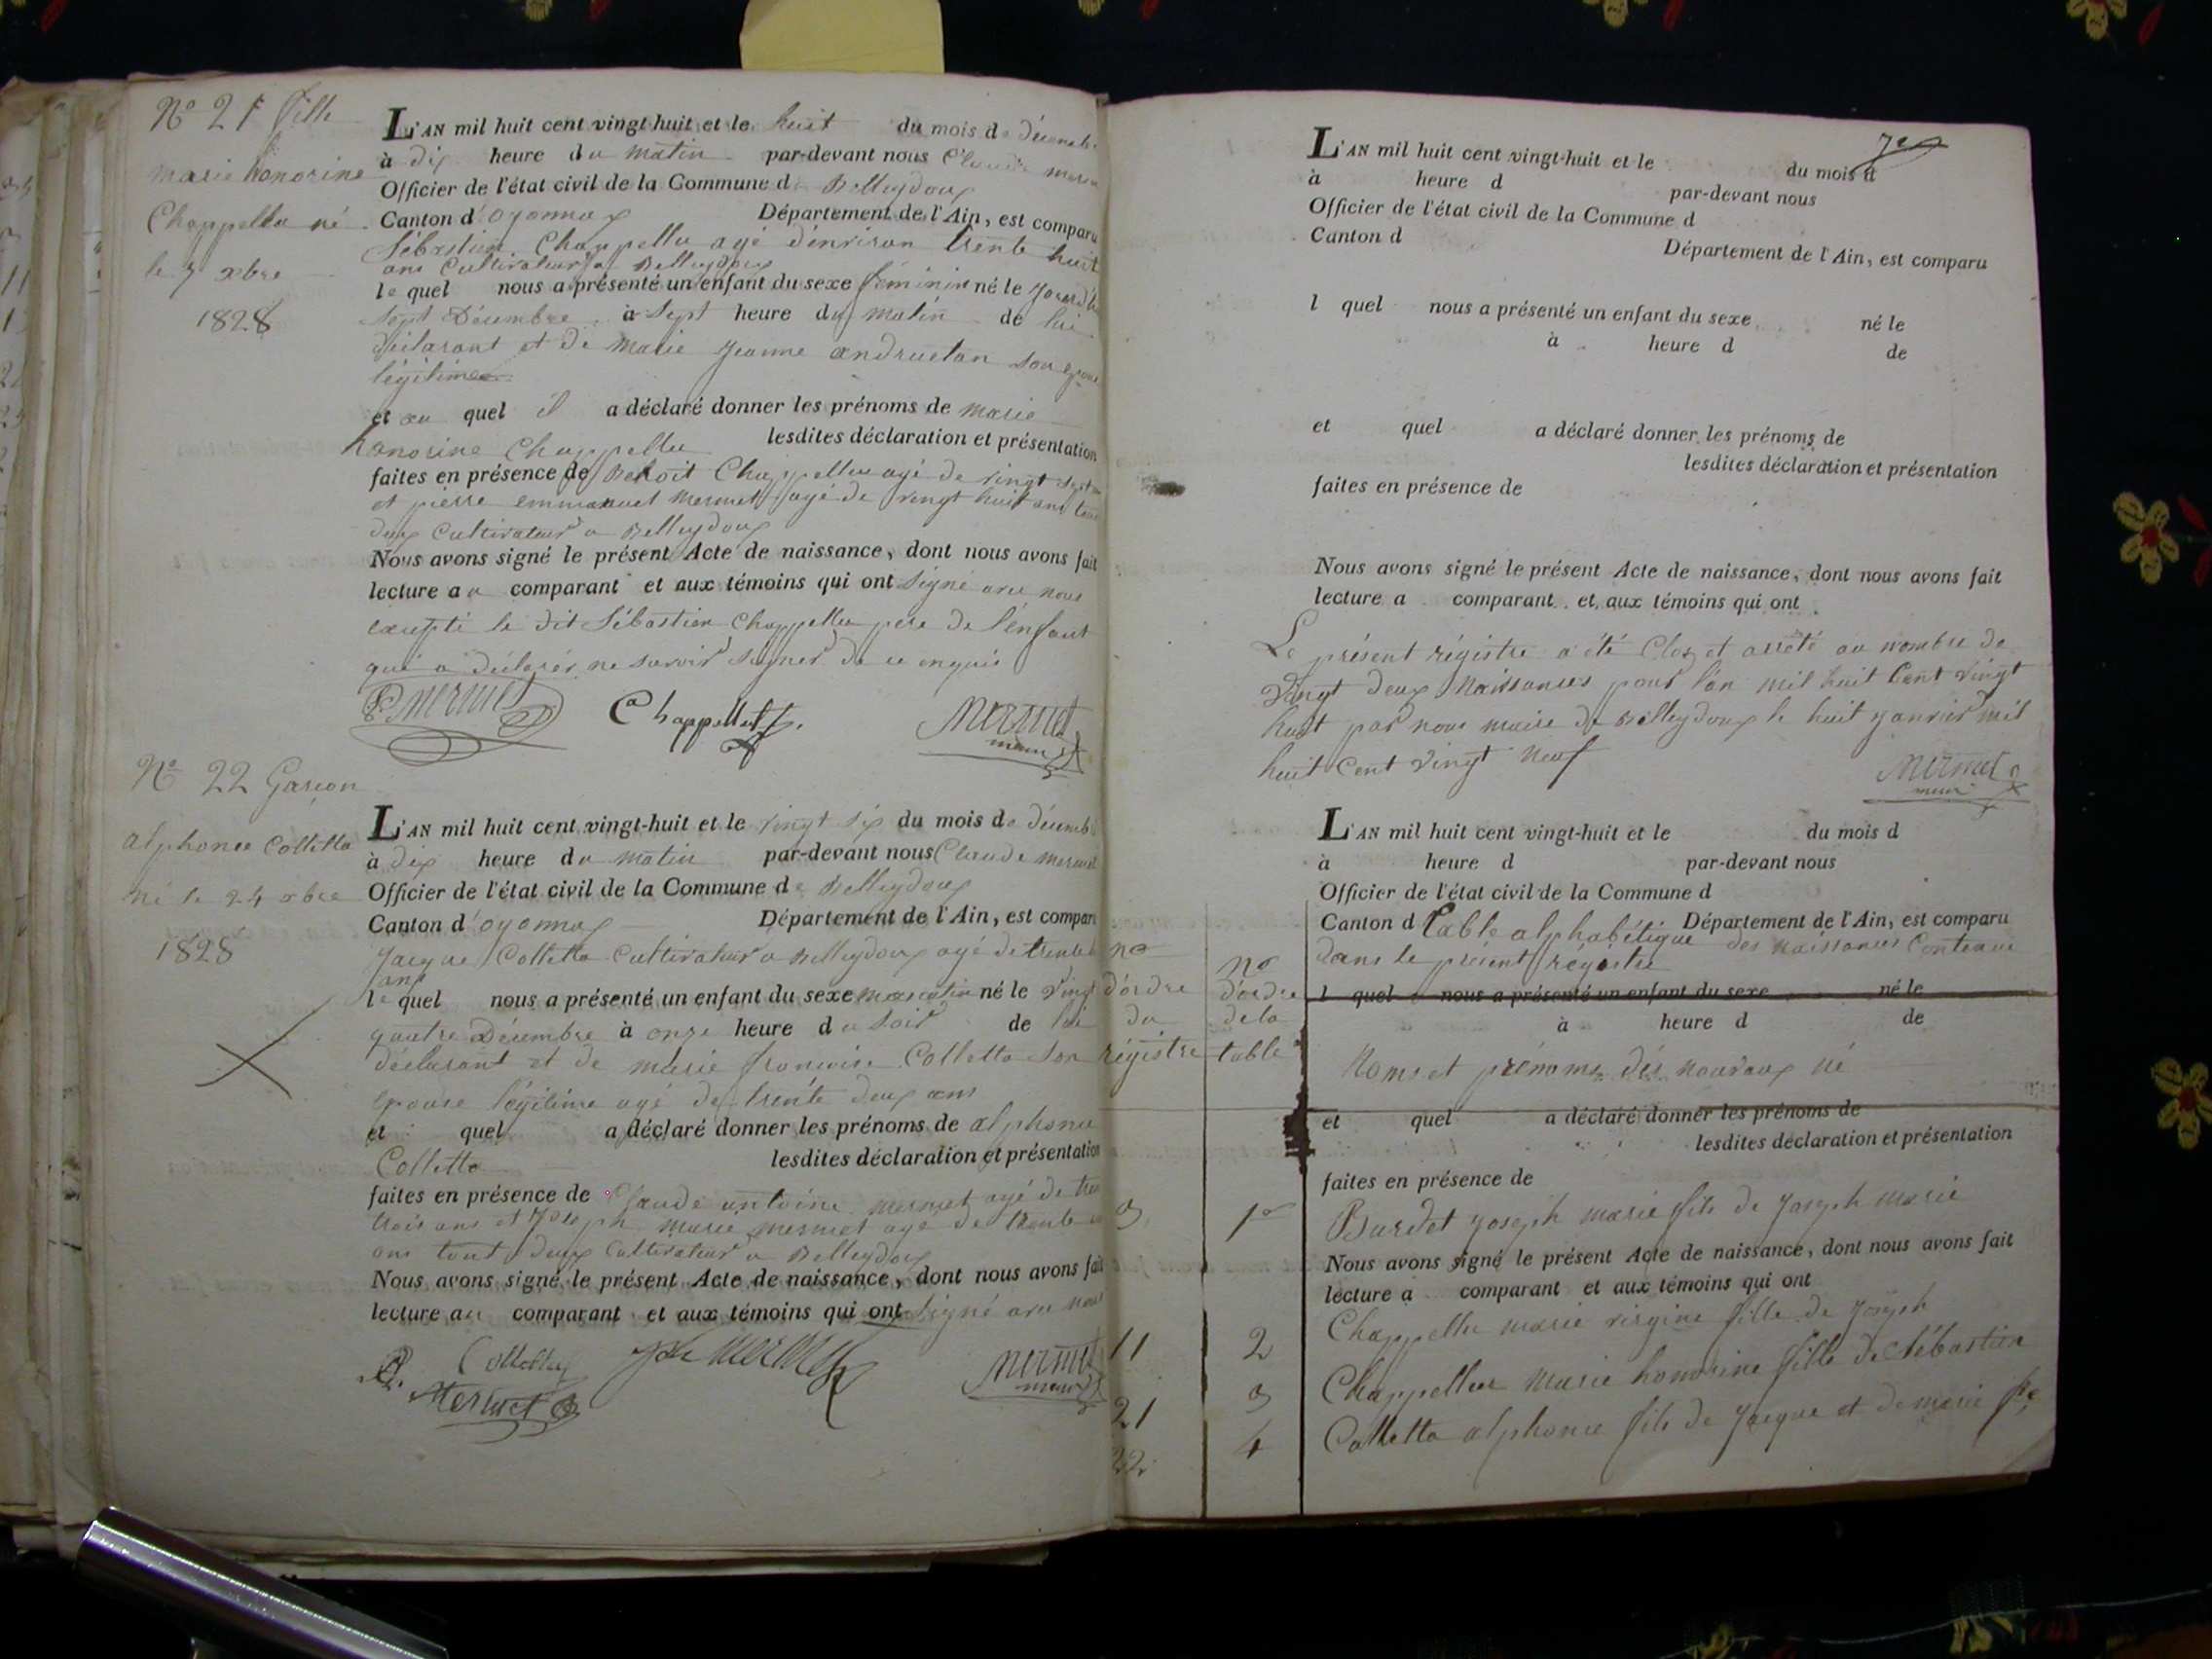 N° 21 fille
marie honorine
Chappellu né
le 7 xbre
1828
L'AN mil huit cent vingt-huit et le huit du mois de décemb
à dix heure du matin par-devant nous Claude
Officier de l'état civil de la Commune de Belleydoux
Canton d'oyonnax Département de l'Ain, est comparu
Sébastien Chappellu agé d'environ trente huit
ans Cultivateur a Belleydoux
le quel nous a présenté un enfant du sexe féminin né le
sept Décembre à sept heure du matin de lui
déclarant et de marie jeanne andruetan son
légitime
et au quel il a déclaré donner les prénoms de marie
honorine Chappellu lesdites déclaration et présentation
faites en présence de Benoit Chappellu agé de vingt sept
et pierre emmanuel mermet agé de vingt huit ans tous
deux Cultivateur a Belleydoux
Nous avons signé le présent Acte de naissance, dont nous avons fait
lecture au comparant et aux témoins qui ont signé avec nous
excepté le dit Sébastien Chappellu pere de l'énfant
qui a déclarér ne savoir signer de ce enquis
P. E. mermet Chappellu Mermet
maire
N° 22 Garçon
alphonce Colletta
né le 24 xbre
1828
L'AN mil huit cent vingt-huit et le vingt six du mois de décemb
à dix heure du matin par-devant nous Claude mermet
Officier de l'état civil de la Commune de Belleydoux
Canton d'oyonnax Département de l'Ain, est compar
Jacque Colletta Cultivateur a Belleydoux agé de trente
ans
le quel nous a présenté un enfant du sexe masculin né le vingt
quatre Décembre à onze heure du soir de lui
déclarant et de marie francoise Colletta son
epouse légitime agé de trente deux ans
et quel a déclaré donner les prénoms de alphonce
Colletta lesdites déclaration et présentation
faites en présence de Claude antoine mermet agé de
trois ans et Joseph marie mermet agé de trente
ans tout deux Cultivateur a Belleydoux
Nous avons signé le présent Acte de naissance, dont nous avons fait
lecture au comparant et aux témoins qui ont signé avec nous
Colletta Mermet
Mermet
maire
L'AN mil huit cent vingt-huit et le du mois d
à heure d par-devant nous
Officier de l'état civil de la Commune d
Canton d Département de l'Ain, est comparu
l quel nous a présenté un enfant du sexe né le
à heure d de
et quel a déclaré donner les prénoms de
lesdites déclaration et présentation
faites en présence de
Nous avons signé le présent Acte de naissance, dont nous avons fait
lecture a comparant et aux témoins qui ont
Le présent régistre a été Clos et arrêté au nombre de
Vingt deux Naissances pour l'an mil huit Cent vingt
huit par nous maire de Belleydoux le huit janvier mil
huit Cent vingt neuf
Mermet
maire
L'AN mil huit cent vingt-huit et le du mois d
à heure d par-devant nous
Officier de l'état civil de la Commune d
Canton d Département de l'Ain, est comparu
Table alphabétique des naissances Contenue
dans le présent régistre
l quel nous a présenté un enfant du sexe né le
à heure d de
no d'ordre du régistre
no d'ordre de la table
Noms et prénoms des nouvaux né
et quel a déclaré donner les prénoms de
lesdites déclaration et présentation
faites en présence de
3 1er Burdet joseph marie fils de joseph marie
Nous avons signé le présent Acte de naissance, dont nous avons fait
lecture a comparant et aux témoins qui ont
11 2 Chappellu marie virgine fille de joseph
21 3 Chappellu marie honorine fille de Sébastien
22 4 Colletta alphonce fils de Jacque et de marie fse